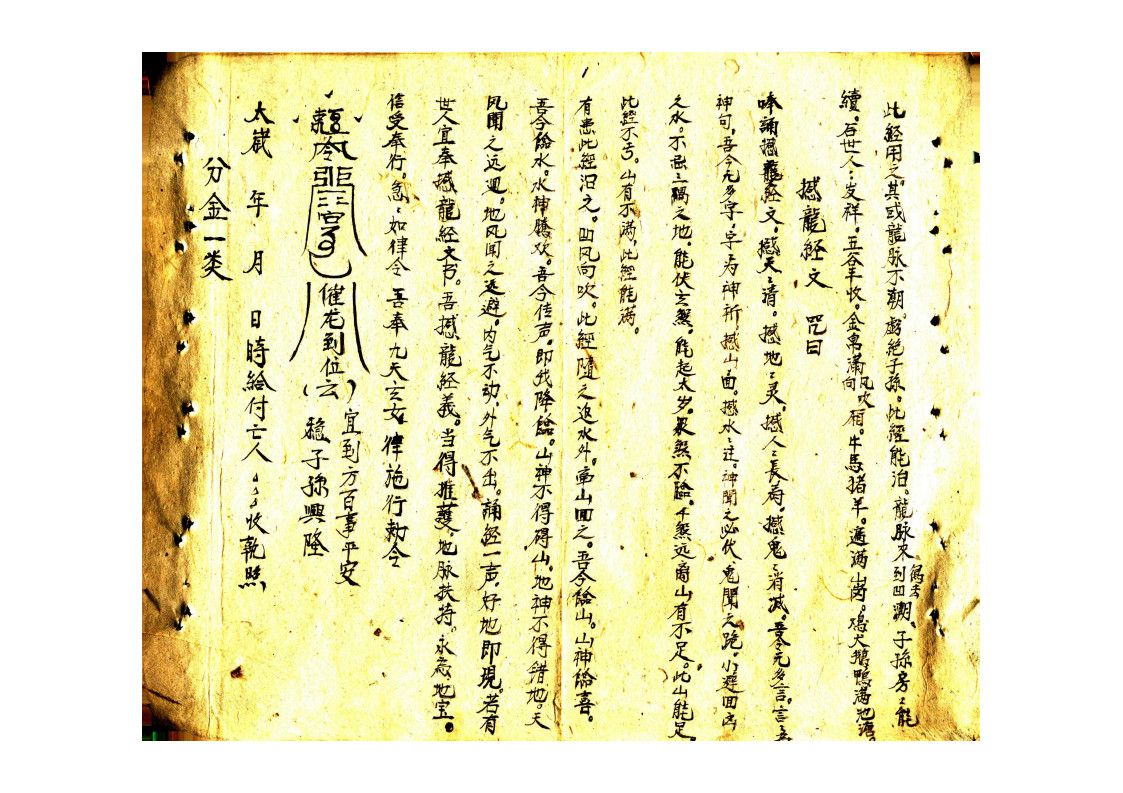 此經用之。其或龍脉不潮。虧絕子孫。此經能泊。龍脉來到凹潮。子孫房〻能
續。召世人〻发祥。五谷丰收。金寓滿向廂。牛馬猪羊。遍滿山崗。鸡犬鵝鴨滿池塘。
撼龍經文 咒曰
奉誦撼龍經文。撼天〻清。撼地〻灵。撼人〻長為。撼鬼〻消滅。吾今元多言。言
神句。吾今元多字。字为神祈。撼山〻面。撼水〻迋。神聞之必伏。鬼聞之跪。小避回
之水。不畄三禍之地。能伏玄煞。能起太岁。衆煞不臨。千煞远离山有不足。此山能足。
此經不亏。山有不滿。此經能滿。
有患此經泊之。凹风向吹。此經隨之返水外。帝山回之。吾今給山。山神給喜。
吾今給水。水神腾欢。吾今传声。即我降臨。山神不得碍山。地神不得錯地。天
风聞之远迴。地风聞之远避。内气不动。外气不出。誦經一声。好地即現。若有
世人宜奉撼龍經文书。吾撼龍経義。当得推護。地脉扶持。永為地宝。
信受奉行。急〻如律令 吾奉九天玄女。律施行勅令
催龙到位(云) 宜到方百事平安
穩子孫興隆
太歲 年 月 日 時給付亡人〻〻〻收執照
分金一类